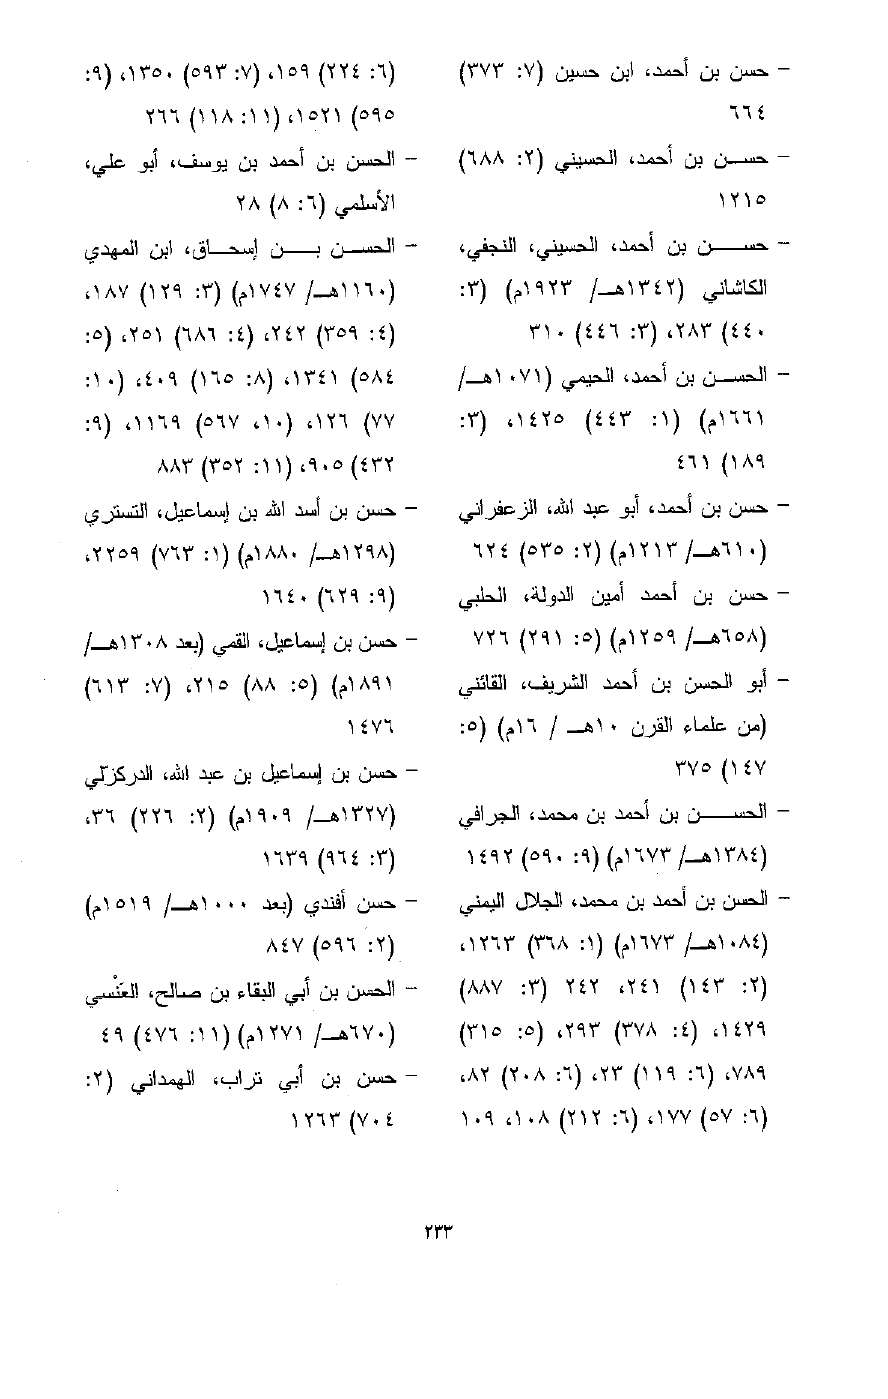 - حسن بن أحمد، ابن حسين (٧: ٣٧٣)
٦٦٤
- حسن بن أحمد، الحسيني (٢: ٦٨٨)
١٢١٥
- حسن بن أحمد، الحسيني، النجفي،
الكاشاني (١٣٤٢هـ/ ١٩٢٣م) (٣:
٤٤٠) ٢٨٣، (٣: ٤٤٦) ٣١٠
- الحسن بن أحمد، الحيمي (١٠٧١هـ/
١٦٦١م) (١: ٤٤٣) ١٤٢٥، (٣:
١٨٩) ٤٦١
- حسن بن أحمد، أبو عبد الله، الزعفراني
(٦١٠هـ/ ١٢١٣م) (٢: ٥٣٥) ٦٢٤
- حسن بن أحمد أمين الدولة، الحلبي
(٦٥٨هـ/ ١٢٥٩م) (٥: ٢٩١) ٧٢٦
- أبو الحسن بن أحمد الشريف، القائني
(من علماء القرن ١٠هـ / ١٦م) (٥:
١٤٧) ٣٧٥
- الحسن بن أحمد بن محمد، الجرافي
(١٣٨٤هـ/ ١٦٧٣م) (٩: ٥٩٠) ١٤٩٢
- الحسن بن أحمد بن محمد، الجلال اليمني
(١٠٨٤هـ/ ١٦٧٣م) (١: ٣٦٨) ١٢٦٣،
(٢: ١٤٣) ٢٤١، ٢٤٢ (٣: ٨٨٧)
١٤٢٩، (٤: ٣٧٨) ٢٩٣، (٥: ٣١٥)
٧٨٩، (٦: ١١٩) ٢٣، (٦: ٢٠٨) ٨٢،
(٦: ٥٧) ١٧٧، (٦: ٢١٢) ١٠٨، ١٠٩
(٦: ٢٢٤) ١٥٩، (٧: ٥٩٣) ١٣٥٠، (٩:
٥٩٥) ١٥٢١، (١١: ١١٨) ٢٦٦
- الحسن بن أحمد بن يوسف، أبو علي،
الأسلمي (٦: ٨) ٢٨
- الحسن بن إسحاق، ابن المهدي
(١١٦٠هـ/ ١٧٤٧م) (٣: ١٢٩) ١٨٧،
(٤: ٣٥٩) ٢٤٢، (٤: ٦٨٦) ٢٥١، (٥:
٥٨٤) ١٣٤١، (٨: ١٦٥) ٤٠٩، (١٠:
٧٧) ١٢٦، (١٠، ٥٦٧) ١١٦٩، (٩:
٤٣٢) ٩٠٥، (١١: ٣٥٢) ٨٨٣
- حسن بن أسد الله بن إسماعيل، التستري
(١٢٩٨هـ/ ١٨٨٠م) (١: ٧٦٣) ٢٢٥٩،
(٩: ٦٢٩) ١٦٤٠
- حسن بن إسماعيل، القمي (بعد ١٣٠٨هـ/
١٨٩١م) (٥: ٨٨) ٢١٥، (٧: ٦١٣)
١٤٧٦
- حسن بن إسماعيل بن عبد الله، الدركزلي
(١٣٢٧هـ/ ١٩٠٩م) (٢: ٢٢٦) ٣٦،
(٣: ٩٦٤) ١٦٣٩
- حسن أفندي (بعد ١٠٠٠هـ/ ١٥١٩م)
(٢: ٥٩٦) ٨٤٧
- الحسن بن أبي البقاء بن صالح، العَنْسي
(٦٧٠هـ/ ١٢٧١م) (١١: ٤٧٦) ٤٩
- حسن بن أبي تراب، الهمداني (٢:
٧٠٤) ١٢٦٣
٢٣٣